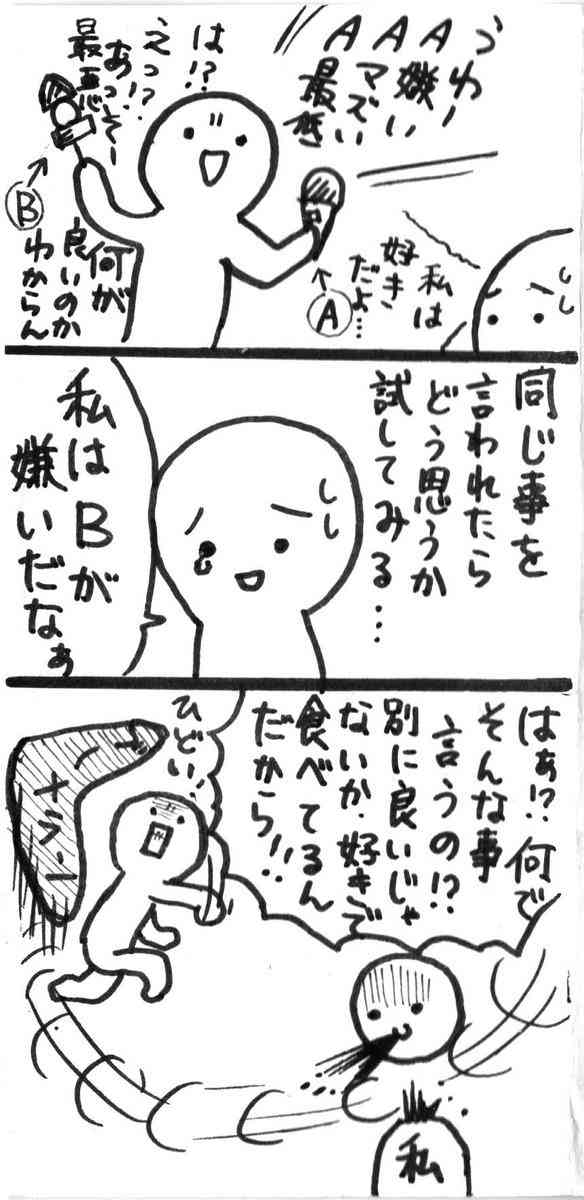 うわー
A嫌い
Aマズい
A最低
は!?
えっ?!
あっそー
最悪
B
何が
良いのか
わからん
A
私は
好き
だよ…
同じ事を
言われたら
どう思うか
試してみる…
私はBが
嫌いだなぁ
はぁ!?何で
そんな事
言うの!?
別に良いじゃ
ないか.好きで
食べてるん
だから!!
ひどい!
メラー
私